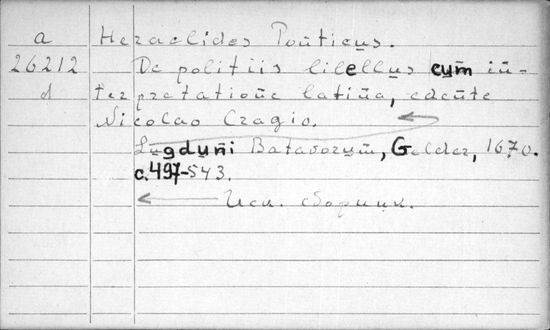 a Heraclides Ponticus.
26212 De politiis libellus cum in-
d terpretatione latina, edente
Nicolao Cragio.
Lugduni Batavorum, Gelder, 1670.
с. 497-543.
Исл. сборник.